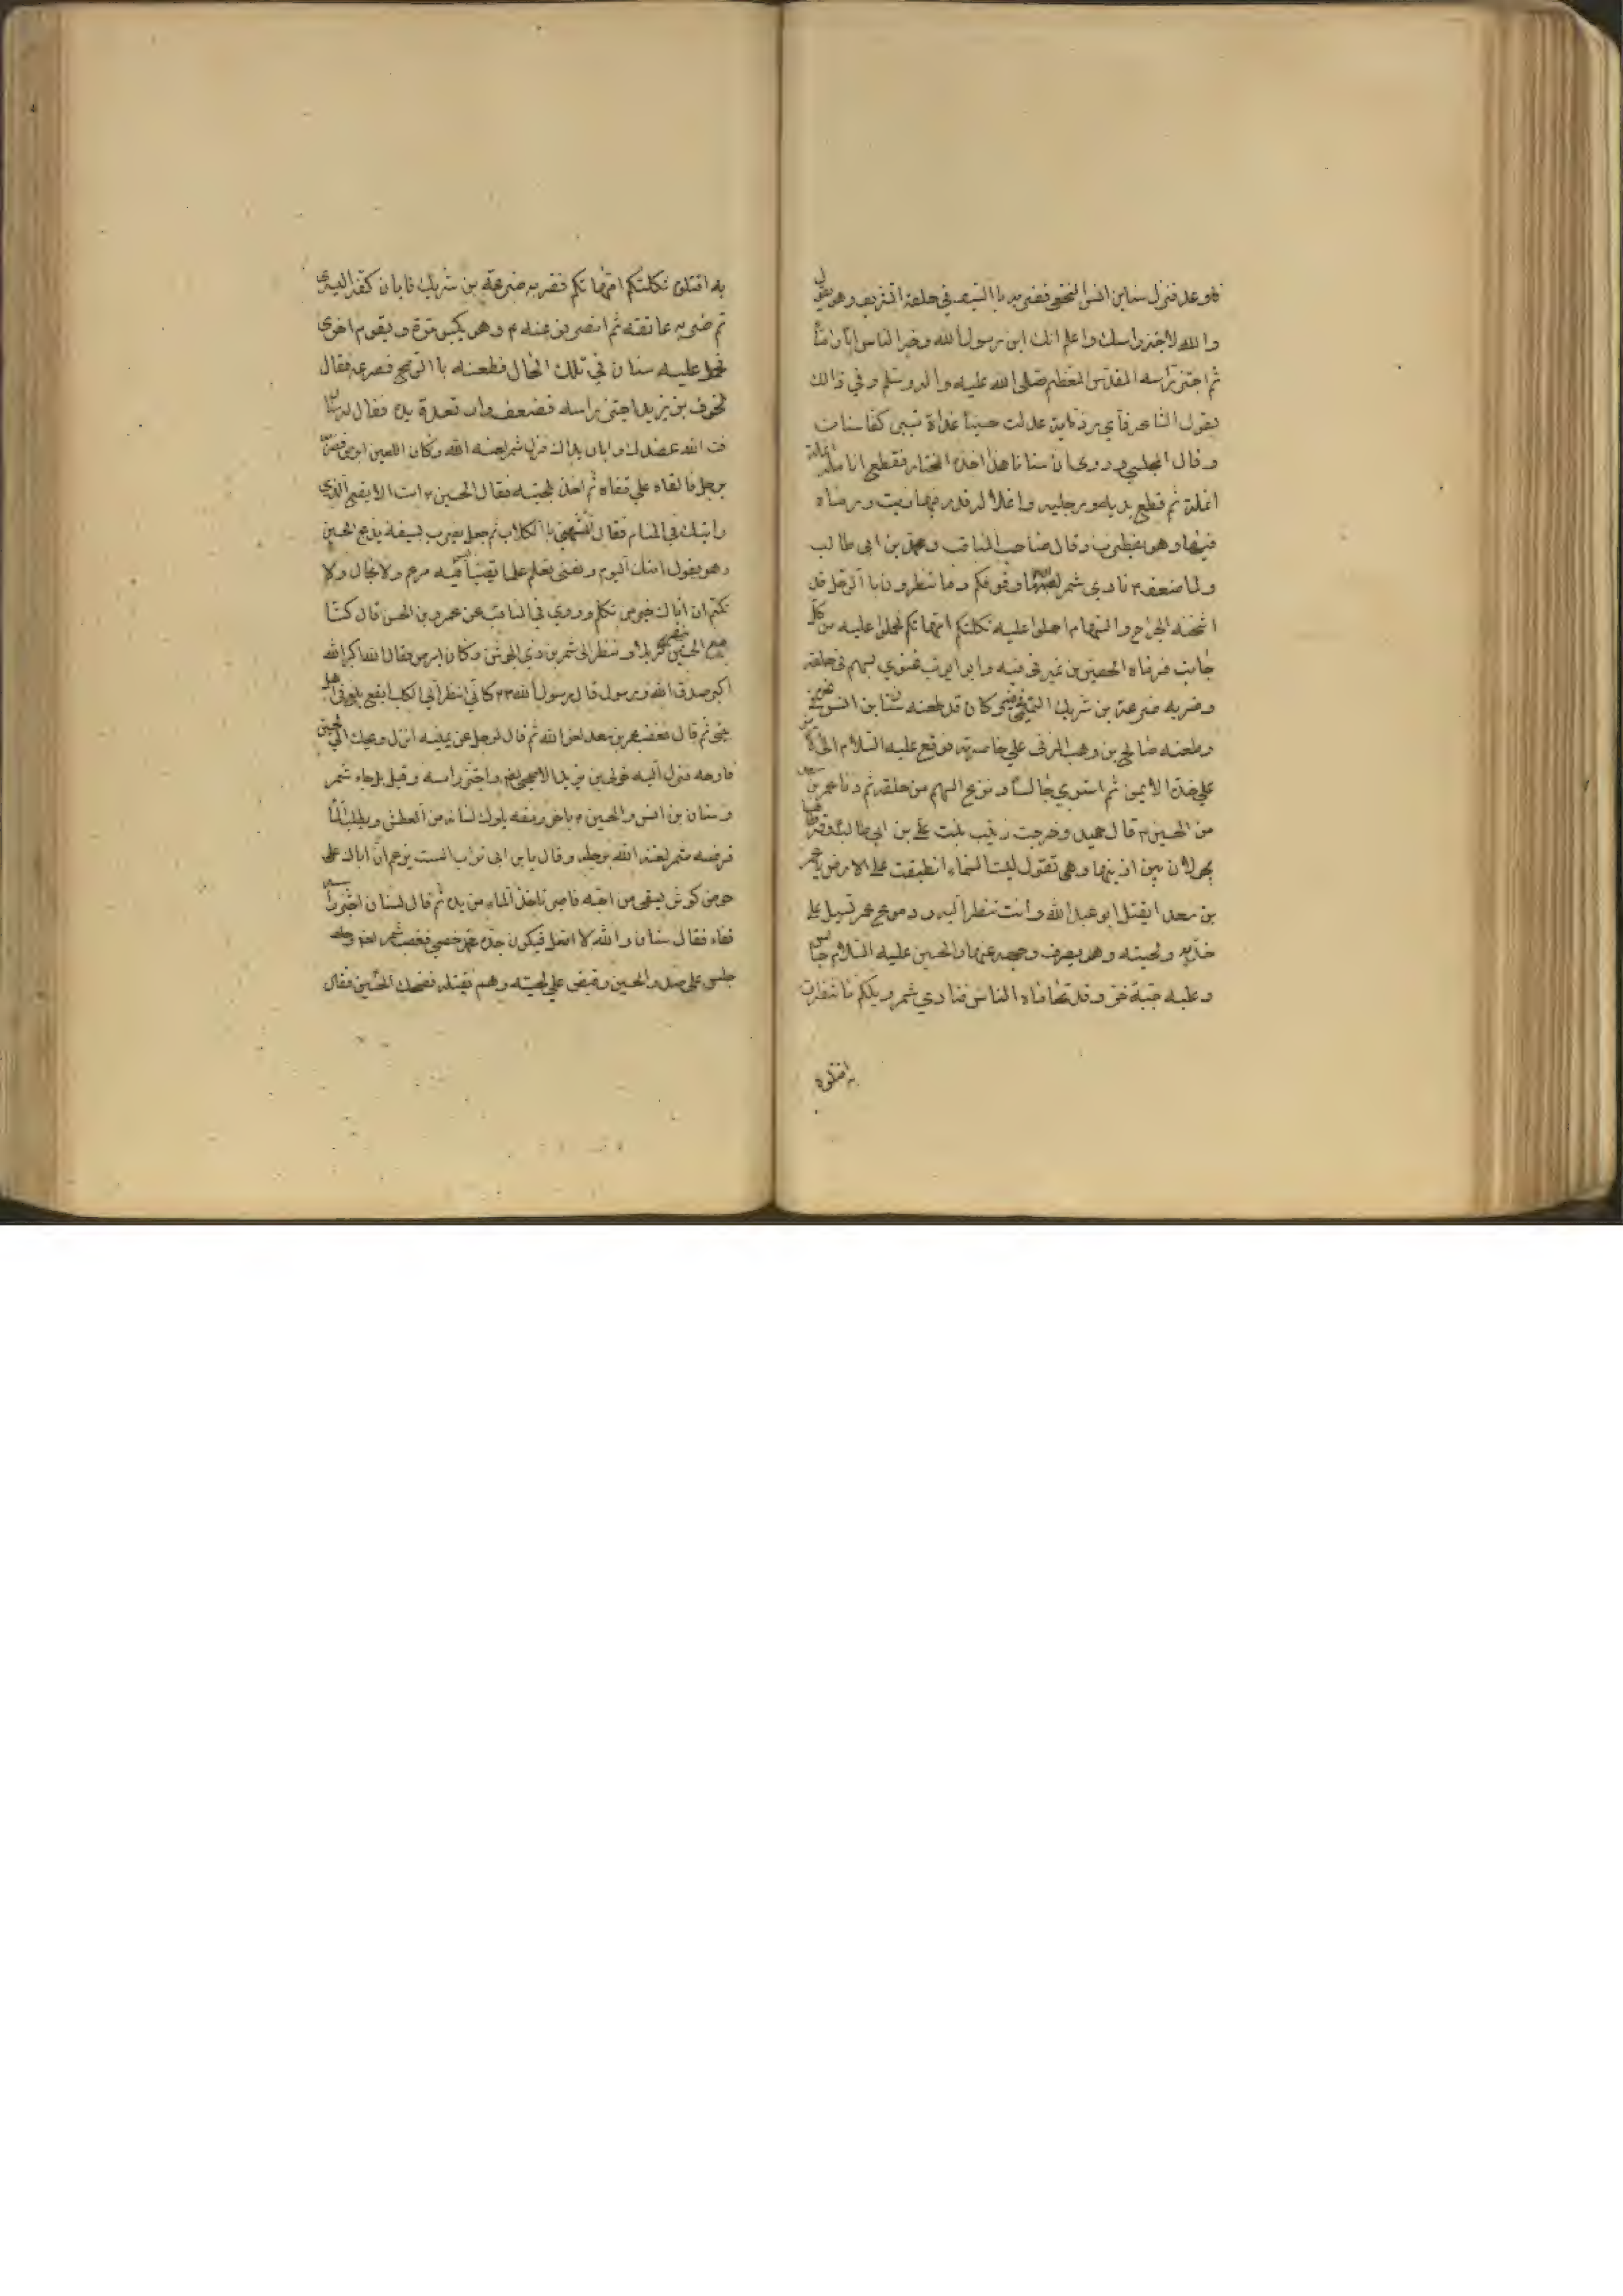 فاوعد فنزل سنابن انس النخعي فضربه باالسيف في حلقه الشريف وهو يقول
والله لاجتز راسك واعلم انك ابن رسول الله وخير الناس ابا واما
ثم اجتز راسه المقدس المعظم صلى الله عليه واله وسلم وفي ذالك
يقول الشاعر فاي رزية عدلت حسينا غداة تبيى كفا سنان
وقال المجلسي وروى ان سنانا هذا اخذه المختار فقطع انامله انملة
انملة ثم قطع يديه ورجليه واغلا له قدر فيها زيت ورماه
فيها وهو يضطرب وقال صاحب المناقب ومحمد بن ابي طالب
ولما ضعف م نادى شمر ما وقوفكم وما تنظرون باالرجل قد
اثخنه الجراح والسهام احملوا عليه ثكلتكم امهاتكم فحملوا عليه من كل
جانب فرماه الحصين بن نمير في فيه وابو ايوب غنوي بسهم في حلقه
وضربه ضرعة بن شريك التميمي وكان قد طعنه سنا بن انس
وطعنه صالح بن وهب المزني على خاصرته فوقع عليه السلام الى
على خده الايمن ثم استوى جالسا ونزع السهم من حلقه ثم دنا عمر بن سعد
من الحسين م قال حميد وخرجت زينب بنت علي بن ابي طالب وقرطاها
يجولان بين اذنيها وهي تقول ليت السماء انطبقت على الارض يا عمر
بن سعد ايقتل ابو عبد الله وانت تنظر اليه ودموع عمر تسيل على
خديه ولحيته وهو يصرف وجهه عنها والحسين عليه السلام جالس
وعليه جبة خز وقد تحاماه الناس فنادى شمر ويلكم ما تنظرون
به اقتلوه
به اقتلوه ثكلتكم امهاتكم فضربه ضرعة بن شريك فابان كفه اليسرى
ثم ضربه عاتقه ثم انصرفوا عنه م وهو يكبو مرة ويقوم اخرى
فحمل عليه سنان في تلك الحال فطعنه باالرمح فصرعه فقال
لخوف بن يزيد اجتز راسه فضعف وارتعدة يده فقال له سنان
فت الله عضدك وابان يداك فنزل شمر لعنه الله وكان اللعين ابرص فضربه
برجله فالقاه على قفاه ثم اخذ بلحيته فقال الحسين م انت الابقع الذي
رايتك في المنام فقال تشبهني باالكلاب ثم جعل يضرب بسيفه يذبح الحسين
وهو يقول اقتلك اليوم ونفسي تعلم علما يقينا ليس فيه مزعم ولا مجال ولا
تكتم ان اباك خير من تكلم وروى في المناقب عن عمرو بن الحسن قال كنا
مع الحسين بنهر كربلا ونظر الى شمر بن ذي الجوشن وكان ابرص فقال الله اكبر الله
اكبر صدق الله ورسوله قال رسول الله كاني انظر الى الكلب ابقع يلغ في دم اهل
بيتي ثم قال فغضب عمر بن سعد لعن الله ثم قال لرجل عن يمينه انزل ويحك الى الحسين
فارحه فنزل اليه خولى بن يزيد الاصبحي لعنه واجتز راسه وقيل بل جاء شمر
وسنان بن انس والحسين م باخر رمقه يلوك لسانه من العطش ويطلب الماء
فرفسه شمر لعنه الله برجله وقال يابن ابي تراب الست تزعم ان اباك على
حوض كوثر يسقي من احبه فاصبر تاخذ الماء من يده ثم قال لسنان اجتز راسه
قفاه فقال سنان والله لا افعل فيكون جده محمد خصمي فغضب شمر لعنه وجلس
جلس على صدر الحسين وقبض على لحيته وهم بقتله فضحك الحسين فقال